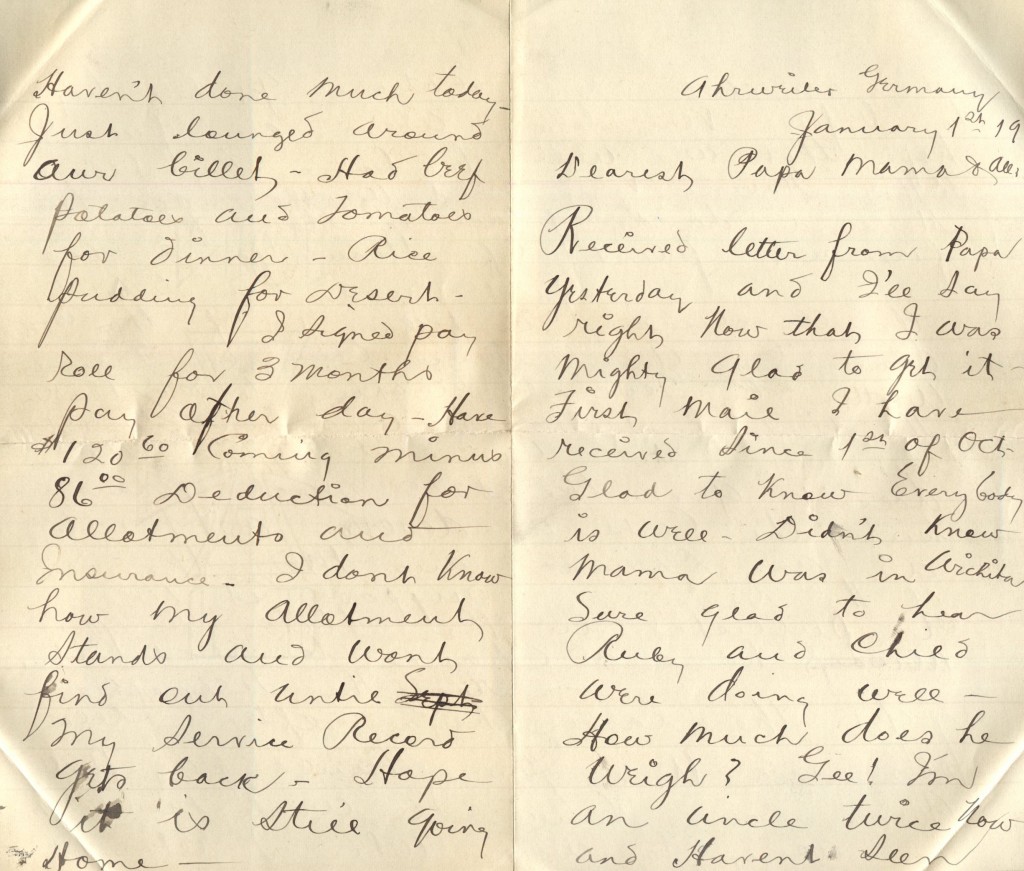 Haven't done much today –
Just lounged around
our billet – Had beef
potatoes and Tomatoes
for Dinner – Rice
pudding for Desert –
I signed pay
roll for 3 months
pay other day – Have
$120 60 Coming minus
86 00 Deduction for
Allotments and
Insurance – I dont Know
how my Allotment
Stands and wont
find out until Sept
My Service Record
gets back – Hope
it is still going
Home —
Ahrweiler Germany
January 1st 19
Dearest Papa Mama & All:
Received letter from Papa
Yesterday and I'll say
right Now that I was
Mighty Glad to get it –
First mail I have
received since 1st of Oct.
Glad to Know Everybody
is well – Didn't Know
Mama was in Wichita
Sure glad to hear
Ruby and Child
were doing well –
How much does he
weigh? Gee! I'm
an uncle twice Now
and Havent seen